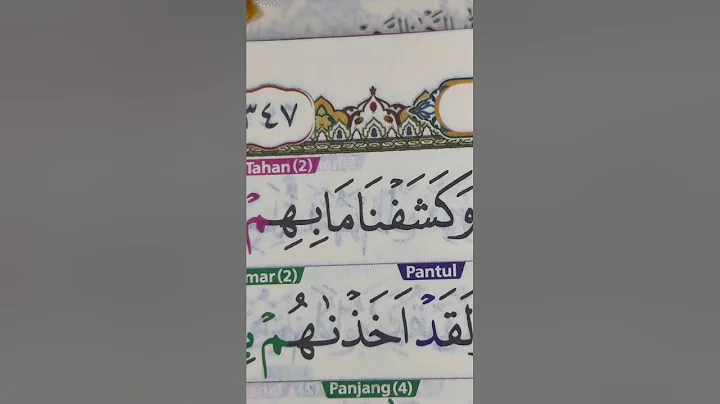 ٣٤٧
Tahan (2)
وَكَشَفْنَا مَا بِهِمْ
mar (2) Pantul
لَقَدْ اَخَذْنٰهُمْ
Panjang (4)